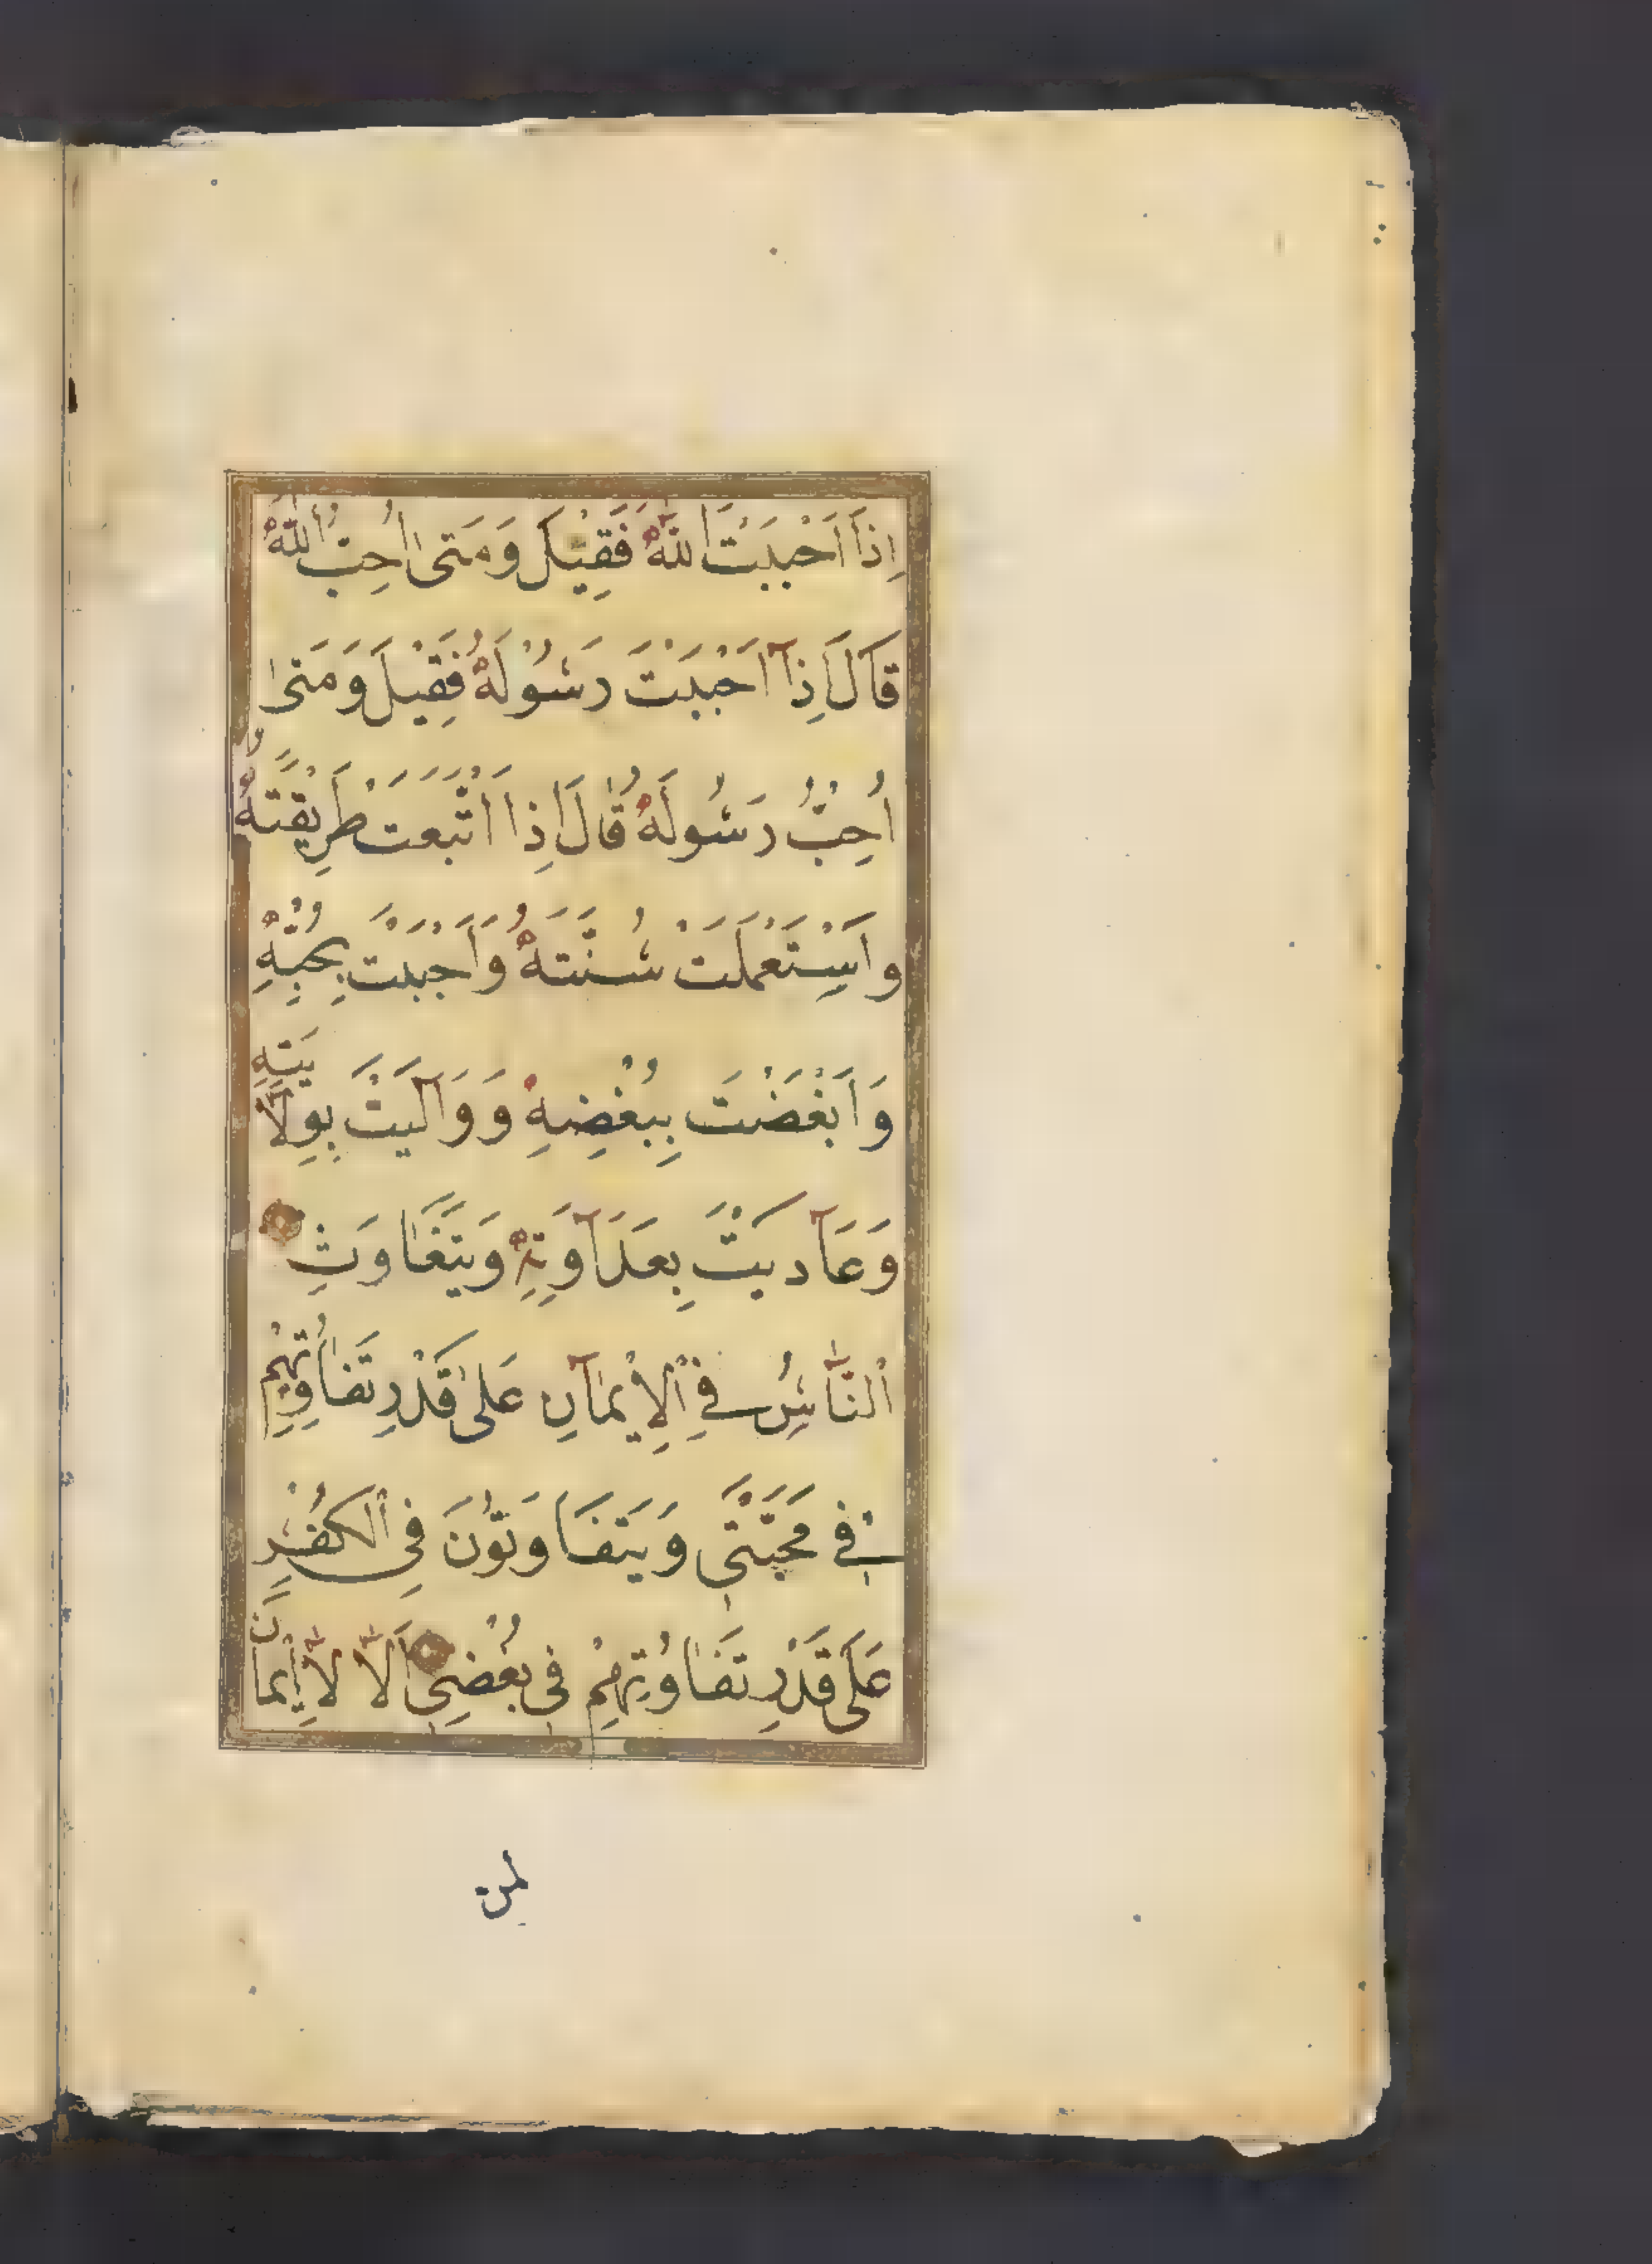 اِذَا اَحْبَبْتَ اللهَ فَقِيْلَ وَمَتىٰ اُحِبُّ اللهَ
قَالَ اِذَا اَحْبَبْتَ رَسُوْلَهُ فَقِيْلَ وَمَتىٰ
اُحِبُّ رَسُولَهُ قَالَ اِذَا اتَّبَعْتَ طَرِيْقَتَهُ
وَاسْتَعْمَلْتَ سُنَّتَهُ وَاَحْبَبْتَ بِحُبِّهِ
وَاَبْغَضْتَ بِبُغْضِهِ وَوَالَيْتَ بِوِلَايَتِهِ
وَعَادَيْتَ بِعَدَاوَتِهِ وَيَتَفَاوَتُ
النَّاسُ فِي الْاِيْمَانِ عَلىٰ قَدْرِ تَفَاوُتِهِمْ
فِي مَحَبَّتِي وَيَتَفَاوَتُوْنَ فِي الْكُفْرِ
عَلىٰ قَدْرِ تَفَاوُتِهِمْ فِي بُغْضِي اَلَا لَا اِيْمَانَ
لمن